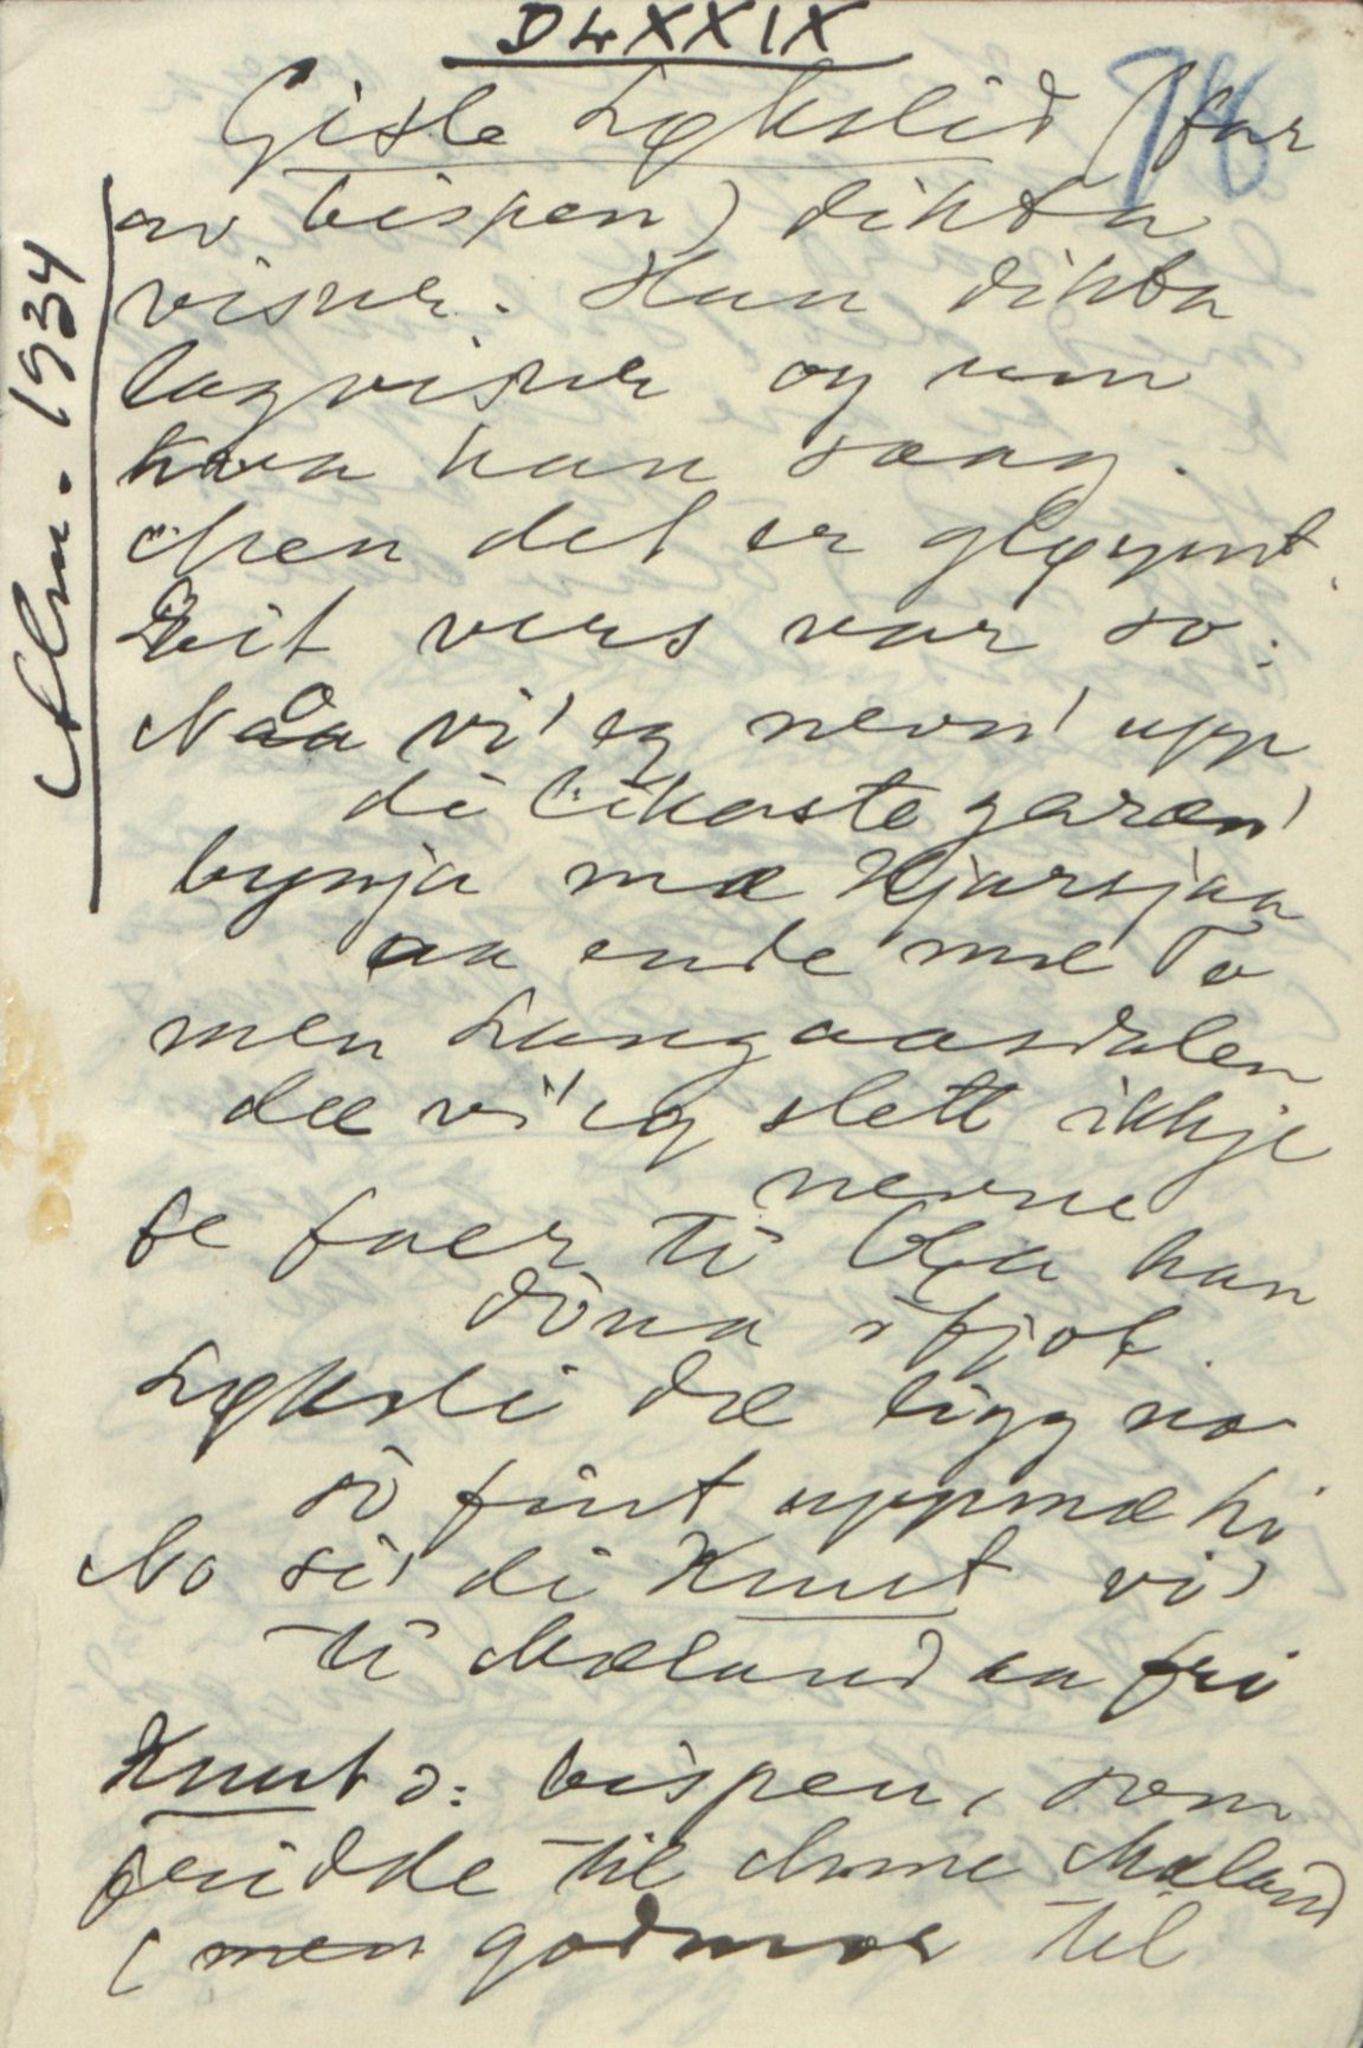 DLXXIX
78
Gisle Løkslid (far
av bispen) dikta
visur. Han dikta
lagvisur og um
kva han saag.
Men det er gløymt.
Eit vers var so:
Naa vi' eg nevn' upp
di likaste garan'
bynja mæ Kjorsjaa
aa ende mæ To
men Langaasdalen
dæ vi' eg slett ikkje
nevne
fe faer ti Ola han
dona ifjol.
Løksli dæ ligg no
so fint uppmæ li
No si' di Knut vi'
ti Mæland aa fri
Knut ɔ: bispen, som
fridde til Anne Mæland
(men godmor til
Atm. 1934